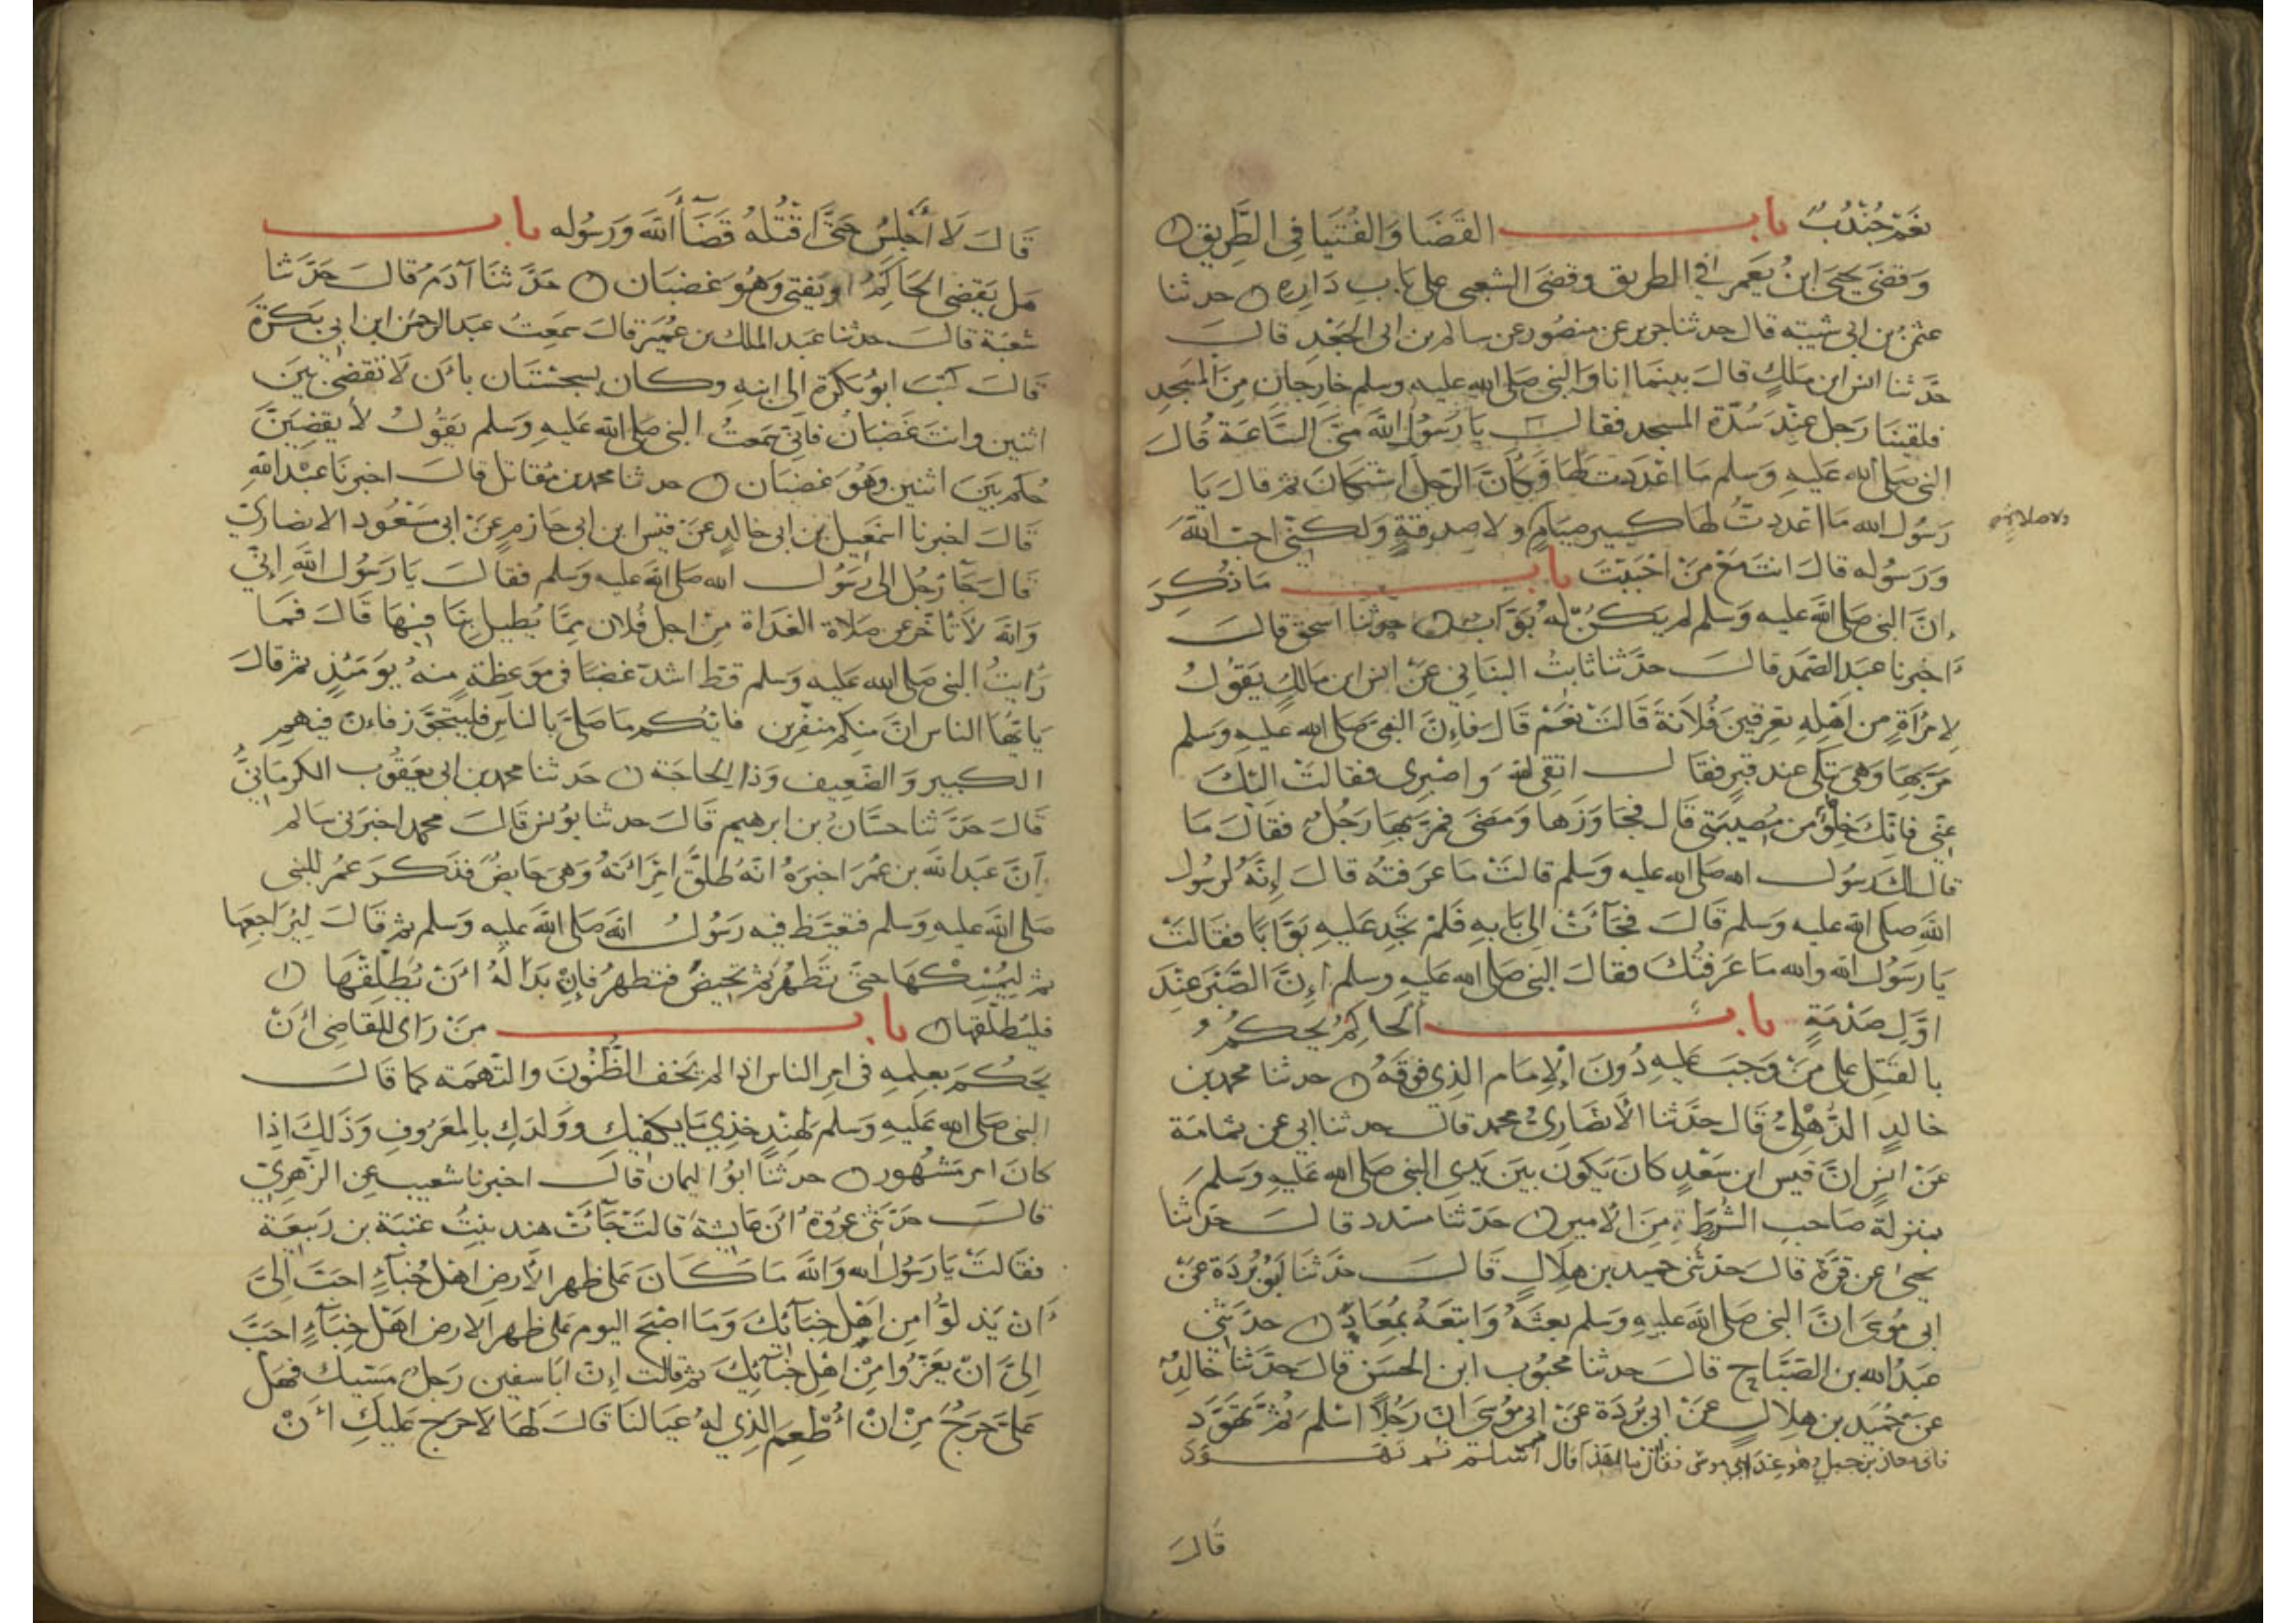 نَعَمْ جُنْدُبٌ باب القَضَا وَالفُتْيَا فِي الطَّرِيقِ
وَقَضَى يَحيَى ابنُ يَعمر في الطريق وقضَى الشعبى على بَابِ دَارِهِ حدثنا
عثمن بن ابى شيبة قال حدثنا جرير عن منصُور عن سالم بن ابى الجَعْدِ قالَ
حَدثنا انس ابن مَلكٍ قالَ بينَما انا وَالنبى صَلى الله عليه وسلم خارجَانِ مِنَ المَسجِدِ
فلقينَا رَجل عِنْدَ سُدّة المسجد فقالَ يَا رَسُولَ اللهِ مَتى السَّاعَة قَالَ
النبى صَلى الله عَليهِ وَسلم مَا اعْدَدت لَهَا فَكَأنَّ الرَجُلَ اسْتكانَ ثم قالَ يَا
رَسُولَ الله مَا اعْدَدتُ لهَا كبير صِيَامٍ ولا صدقةٍ وَلكنّى احبُّ اللهَ
ولا صلاةٍ
وَرَسُوله قالَ انت مَعَ مَنْ احْبَبْتَ باب مَا ذُكِرَ
انَّ النبى صَلى الله عليه وسلم لم يكنْ لهُ بَوَّابٌ حدثنا اسحق قالَ
اخبرنا عبد الصَّمَد قالَ حدَّثنا ثابتُ البنَانِي عَنْ انس ابن مَالكٍ يَقُولُ
لِامْرَأةٍ مِن اهْلِهِ تعرِفينَ فُلَانَةَ قَالَتْ نَعَمْ قَالَ فَإنَّ النبىَّ صَلى الله عليهِ وَسلم
مَرَّ بِهَا وَهى تبكى عند قبرٍ فقالَ اتقى الله وَاصْبِرى فقالتْ اليْكَ
عَنِّي فانّكَ خِلوٌ من مُصيبَتى قَال فجَاوَزَها وَمَضى فمَرَّ بِهَا رَجُلٌ فقالَ مَا
قال لك رَسُولُ الله صَلى الله عليه وسلم قالتْ مَا عَرَفتُه قالَ إنّهُ لَرسُول
اللهِ صَلى الله عليه وسلم قَالَ فجَآءَتْ الى بَابِهِ فَلَمْ تجَدِ عَليهِ بَوّابًا فقَالتْ
يَا رَسُولَ الله والله مَا عَرَفتُكَ فقالَ النبى صَلى الله عَليهِ وسلم إنَّ الصَّبْرَ عِنْدَ
اوَّلِ صَدْمَةٍ باب الحاكِمُ يَحكمُ
بالقَتلِ على مَنْ وَجَبَ عَليهِ دُونَ الإمَام الذِي فوقَهُ حدثنا محمد بن
خالدٍ الذّهْلِيُّ قَال حَدَّثنا الأنصَارِيُّ محمد قالَ حدثنا ابى عن ثمامَة
عَنْ انسٍ انّ قَيس ابن سَعْدٍ كانَ يَكونُ بينَ يَدَيِ النبى صَلى الله عَليهِ وَسلمَ
بمنزلة صَاحب الشُّرَطِ مِنَ الأمير حَدّثنا مسَدد قالَ حَدثنا
يحيى عن قرّة قالَ حدّثنى حميد بن هِلَالٍ قَالَ حدّثنَا ابُو بُرْدَة عَنْ
ابى مُوسَى انَّ النبى صَلى الله عليهِ وسلم بعثَهُ وَاتبعَهُ بمُعَاذٍ حدَّثنى
عَبدُ الله بن الصّبَّاحِ قالَ حدثنا محبُوب ابن الحسَن قالَ حدّثنا خالدٌ
عَنْ حُمَيْد بن هِلَالٍ عَنْ ابى بُردَة عَنْ ابى مُوسَى ان رَجُلًا اسْلم ثمَّ تَهَوَّدَ
فاتى معاذ بن جبل وهو عِندَ ابى مُوسَى فقال مَا لهذَا قال اسْلم ثم تَهَوَّدَ
قَالَ
قَالَ لَا أجْلِسُ حَتَّى اقْتُلهُ قَضَآءُ اللهِ وَرَسُوله باب
هَل يَقضِى الحَاكِمُ او يُفتِى وَهُوَ غَضبَان حَدَّثنَا آدَمُ قالَ حَدَّثنَا
شعْبَة قالَ حدثنا عَبد الملك بن عُمَيْر قالَ سَمِعتُ عَبد الرحمن ابن ابى بَكرَة
قَالَ كتبَ ابُو بكرَة الى ابنهِ وكان بسجسْتَان بأن لَا تَقضِىَ بَينَ
اثنين وانت غَضبَانُ فانّى سَمعتُ النبى صلى الله عَليهِ وَسلم يَقُولُ لَا يقضِيَنَّ
حُكم بَينَ اثنين وَهُوَ غَضبَان حدثنا محمد بن مُقاتل قالَ اخبرنَا عَبْد اللهِ
قَالَ اخبرنا اسْمَعيل بن ابى خالدٍ عَنْ قيْس ابن ابى حَازمٍ عَنْ ابى مَسْعُود الانصَارِيّ
قَالَ جَآءَ رَجُل الى رَسُولِ الله صَلى الله عليه وسلم فقالَ يَا رَسُولَ اللهِ إنّي
وَاللهِ لَأتأخّر عن صَلَاة الغدَاة مِنْ اجل فُلان ممَّا يُطيل بِنَا فيهَا قَالَ فمَا
رَأيتُ النبى صَلى الله عَليه وسلم قط اشدّ غضَبًا فى مَوعظةٍ منهُ يوَمَئذٍ ثم قالَ
يَا أيّهَا الناس انّ منكم منفّرين فايّكم مَا صَلّى بالناسِ فليتجَوَّز فاءنّ فيهم
الكبير وَالضَّعيف وَذا الحاجَة حدثنا محمد بن ابى يَعقُوب الكرمَانِيُّ
قَالَ حَدَّثنا حسَّان بن ابرهيم قَالَ حدثنا يُونس قَالَ محمد اخبرَنى سَالم
اَنَّ عَبد الله بن عُمَرَ اخبَرَهُ انّهُ طَلّقَ امْرَاتَهُ وَهى حَايضٌ فذكرَ عمُر للنبى
صَلى الله عليه وسلم فتغيَّظ فيه رَسُولُ الله صَلى الله عليه وسلم ثم قَالَ ليُرَاجعهَا
ثم ليُمْسِكْهَا حتى تَطْهُرَ ثم تحيضَ فتطهرُ فإنْ بَدَا لَهُ أنْ يُطَلّقَهَا
فليُطلّقها باب مَنْ رَاى للقاضِى أنْ
يَحكُمَ بعِلمِهِ فى امرِ الناس اذا لم يَخَف الظُنُونَ والتّهمَة كما قالَ
النبى صَلى الله عَليهِ وسلم لهِندٍ خذِي مَا يكفيكِ وَوَلدَكِ بالمَعْرُوفِ وَذَلِكَ اذا
كَانَ امر مَشْهُور حدثنا ابُو اليمان قالَ اخبرنا شعيب عن الزّهرِيّ
قالَ حَدّثنى عُروَة أنّ عَايشة قَالتْ جَآءَتْ هند بنتُ عتبَة بن رَبيعَة
فقَالتْ يَا رَسُولَ الله وَاللهِ مَا كانَ عَلى ظهر الأرضِ اهْل خِبَآءٍ احَبّ الىَّ
اَنْ يَذلوُّا مِن اهْل خبَآئكَ وَمَا اصْبَحَ اليوم عَلى ظهر الارض اهْل خِبَآءٍ احَبَّ
إلىَّ انْ يَعَزُّوا مِنْ اهْل خبَآئِكَ ثم قالت إنّ ابَا سفين رَجلٌ مَسّيك فهَلْ
عَلىَّ حَرَجٌ مِنْ انْ أطْعِمَ الذِي لهُ عيَالنَا قالَ لَهَا لَا حَرَج عَليكِ أنْ